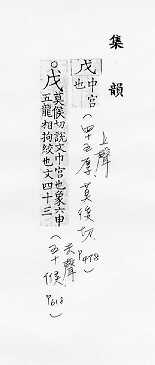 集韻
戊中宮也
(四十五厚莫後切P.478)
上聲
○戊莫𠊱切說文中宮也象六甲五龍相拘絞也文四十三
去聲
(五十候P.618)